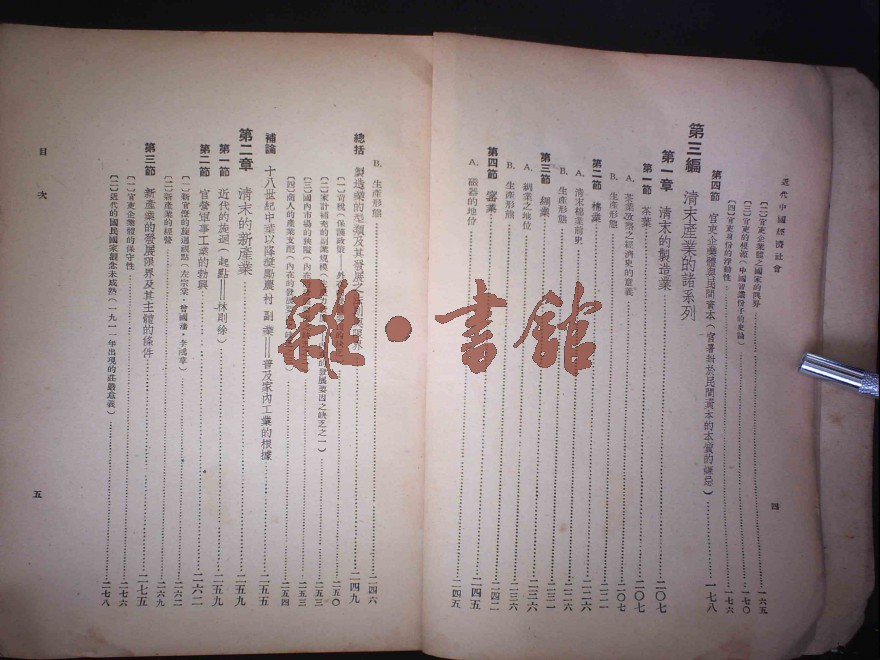 近代中國經濟社會
四
〔二〕官吏企業體之國家的限界 一六五
〔三〕官吏的根源（中國官議份子的史論） 一七〇
〔四〕官吏身份的浮動性 一七六
第四節 官吏企業體與民間資本（官吏對於民間資本的本質的嫌忌） 一七八
第三編 清末產業的諸系列
第一章 清末的製造業 二〇七
第一節 茶業 二〇七
A. 茶業政策之經濟史的意義
B. 生產形態
第二節 棉業 二二六
A. 清末棉業前史 二二六
B. 生產形態 二三一
第三節 絹業 二三六
A. 絹業之地位 二三六
B. 生產形態
第四節 窰業 二四五
A. 磁器的地位 二四五
B. 生產形態 二四六
總括 製造業的型類及其發展之 二四九
〔一〕苛稅（保護政策 二五〇
〔二〕家計補充的副業規模 的發展要因之缺乏之一） 二五三
〔三〕國內市場的狹隘（內在 二五三
〔四〕商人的產業支配（內在的發展 二五四
補論 十八世紀中葉以降獎勵農村副業——普及家內工業的根據 二五五
第二章 清末的新產業 二五九
第一節 近代的旋迴（起點——林則徐） 二五九
第二節 官營軍事工業的勃興 二六二
〔一〕新官僚的旋迴觀點（左宗棠・曾國藩・李鴻章） 二六二
〔二〕新產業的經營 二六九
第三節 新產業的發展限界及其主體的條件 二七五
〔一〕官吏企業體的保守性 二七六
〔二〕近代的國民國家觀念未成熟（一九一一年出現的莊嚴意義） 二七八
目次
五
雜・書館